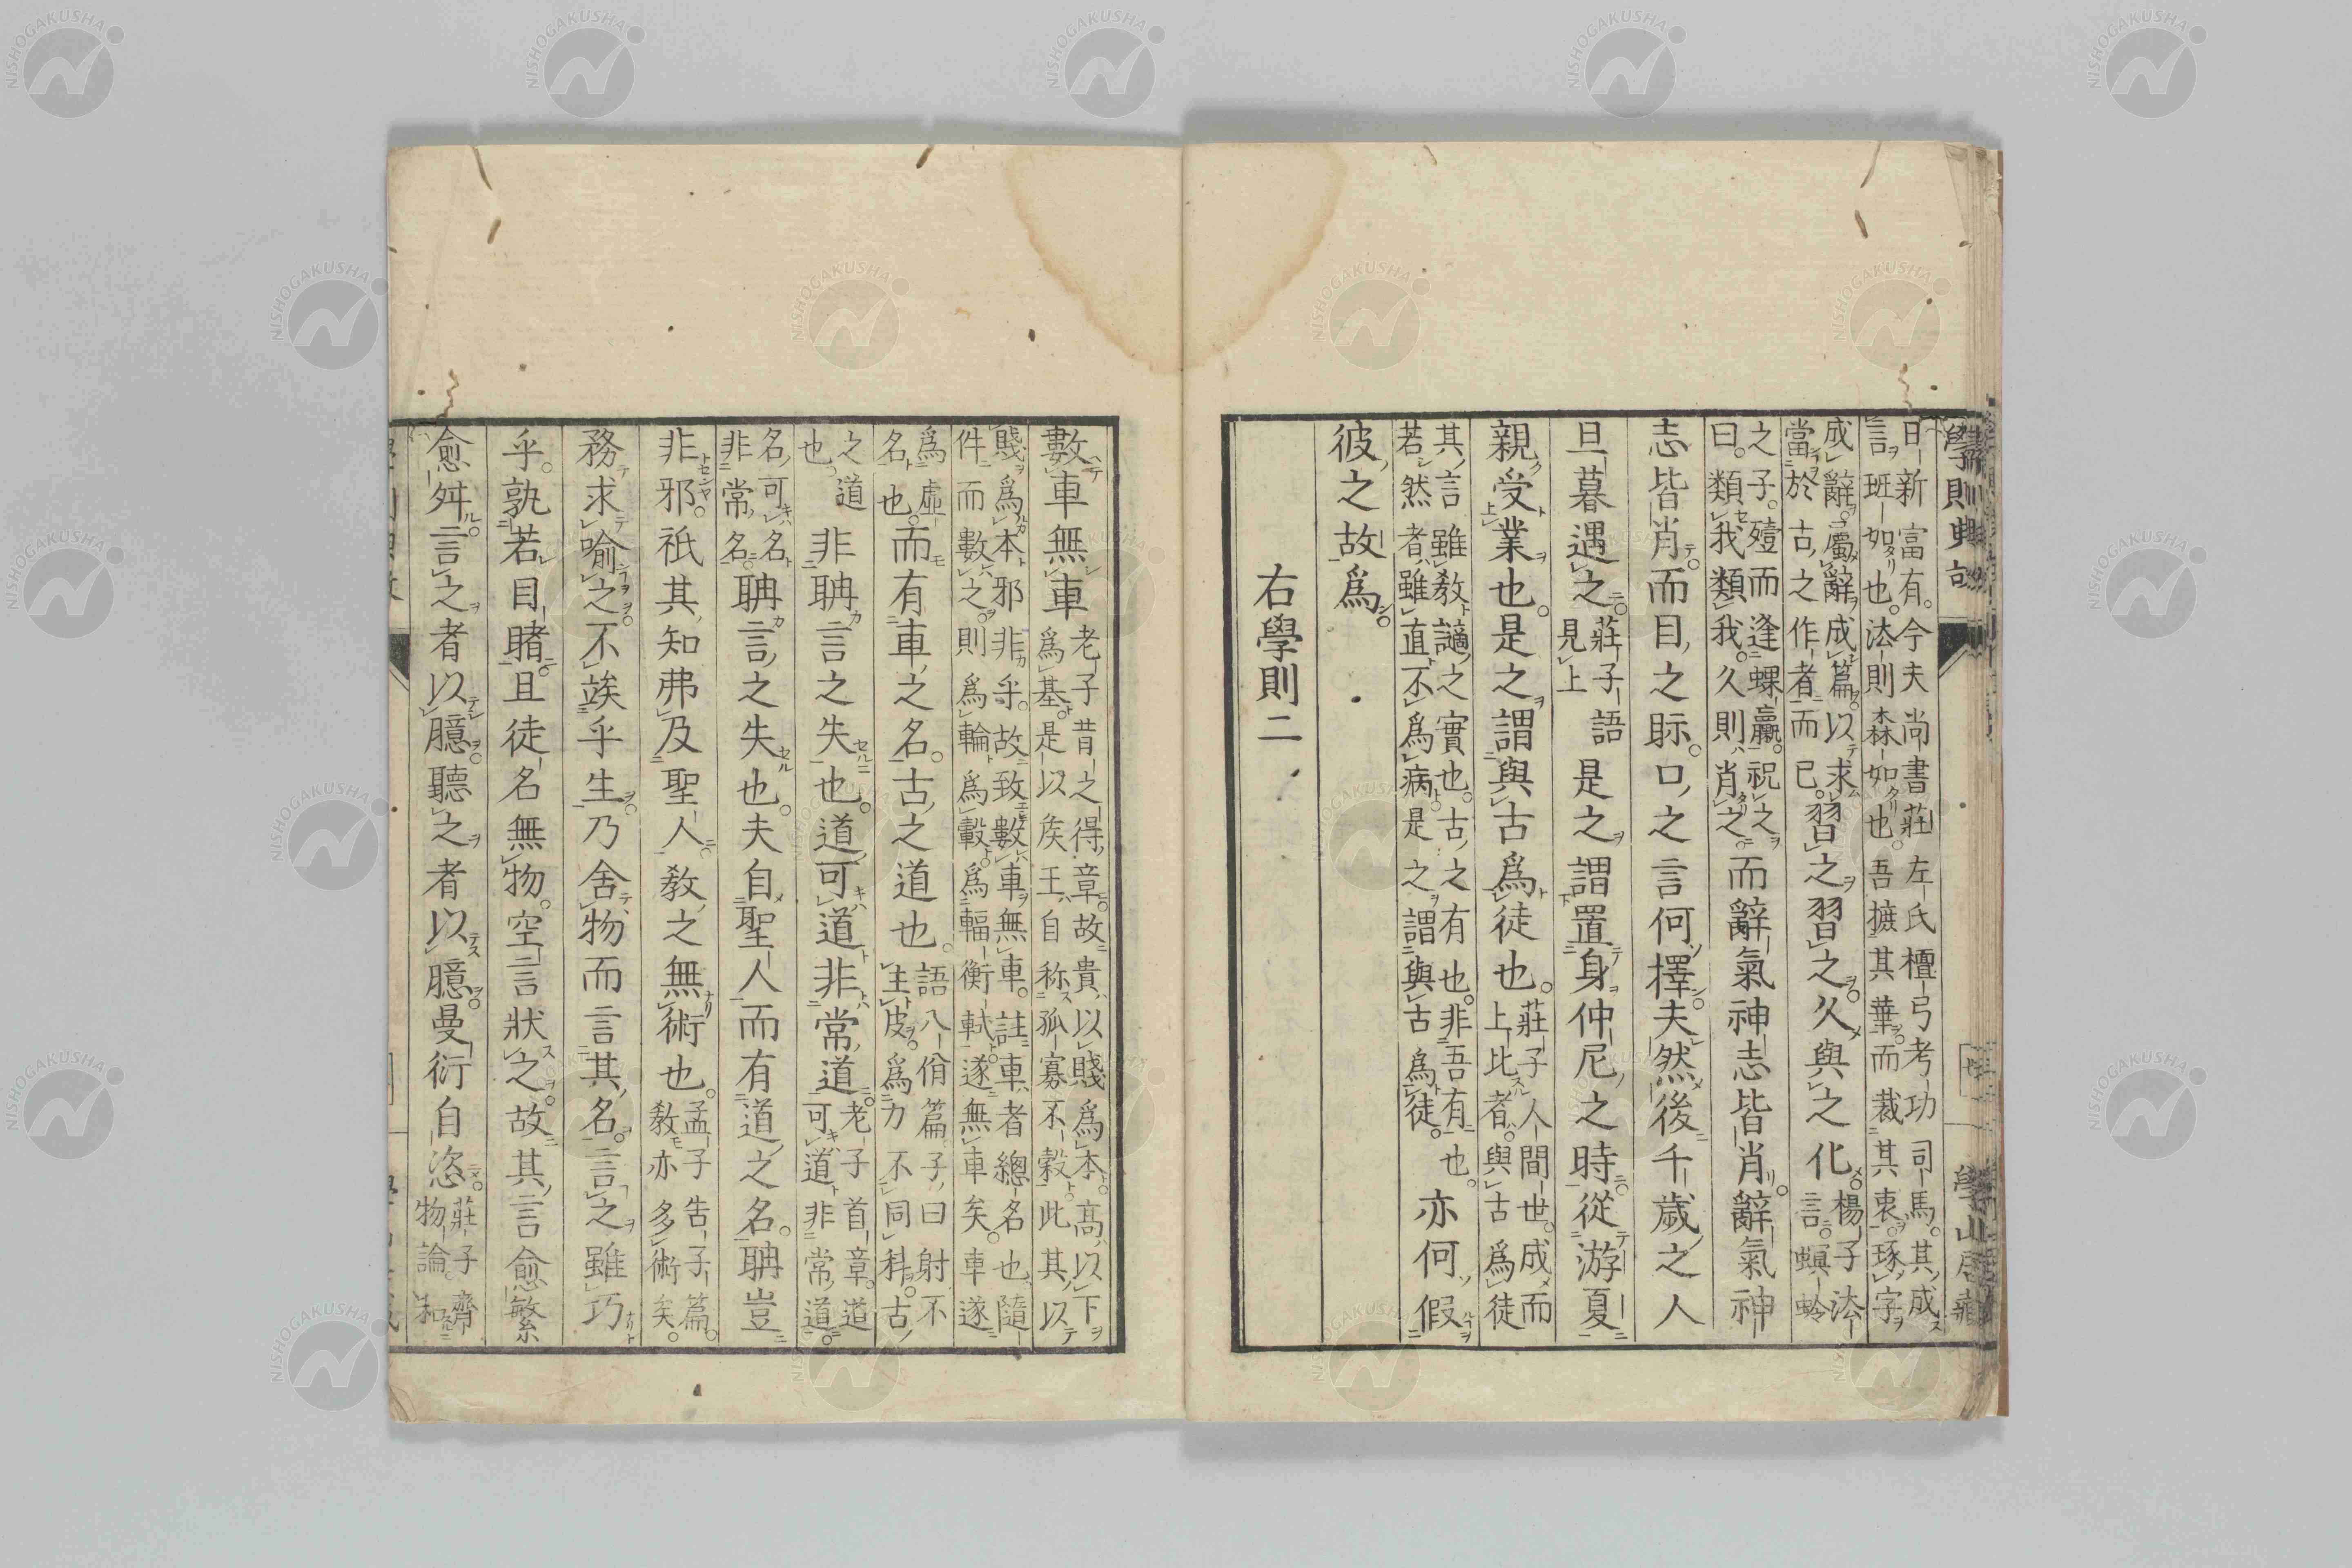 日新富有。今夫尚書莊左氏檀弓考功司馬。其成
言班如也。法則森如也。吾摭其華而裁其衷。琢字
成辭。屬辭成篇。以求
當於古之作者而已。習之習之久與之化。楊子法
言。螟蛉
之子。殪而逢蜾蠃。祝之
曰。類我類我。久則肖之。而辭氣神志皆肖。辭氣神
志皆肖。而目之眎。口之言何擇。夫然後千歲之人
旦暮遇之。莊子語
見上
是之謂置身仲尼之時。從游夏
親受業也。是之謂與古爲徒也。莊子人間世。成而
上比者。與古爲徒
其言雖教讁之實也。古之有也。非吾有也。
若然者。雖直不爲病。是之謂與古爲徒。
亦何假
彼之故爲。
右學則二
數車無車老子昔之得章。故貴以賤爲本。高以下
爲基。是以矦王自称孤寡不穀。此其以
賤爲本邪非乎。故致數車無車。註車者總名也。隨
件而數之。則爲輪爲轂。爲輻衡軾。遂無車矣。車遂
爲虛
名也。
而有車之名。古之道也。語八佾篇。子曰射不
主皮。爲力不同科。古
之道
也。
非聃言之失也。道可道非常道。老子首章。道
可道非常道。
名可名
非常名。
聃言之失也。夫自聖人而有道之名。聃豈
非邪。祇其知弗及聖人教之無術也。孟子告子篇。
教亦多術矣。
務求喩之。不竢乎生。乃舍物而言其名。言之雖巧
乎。孰若目睹。且徒名無物。空言狀之。故其言愈繁
愈舛。言之者以臆。聽之者以臆。曼衍自恣。莊子齊
物論。和